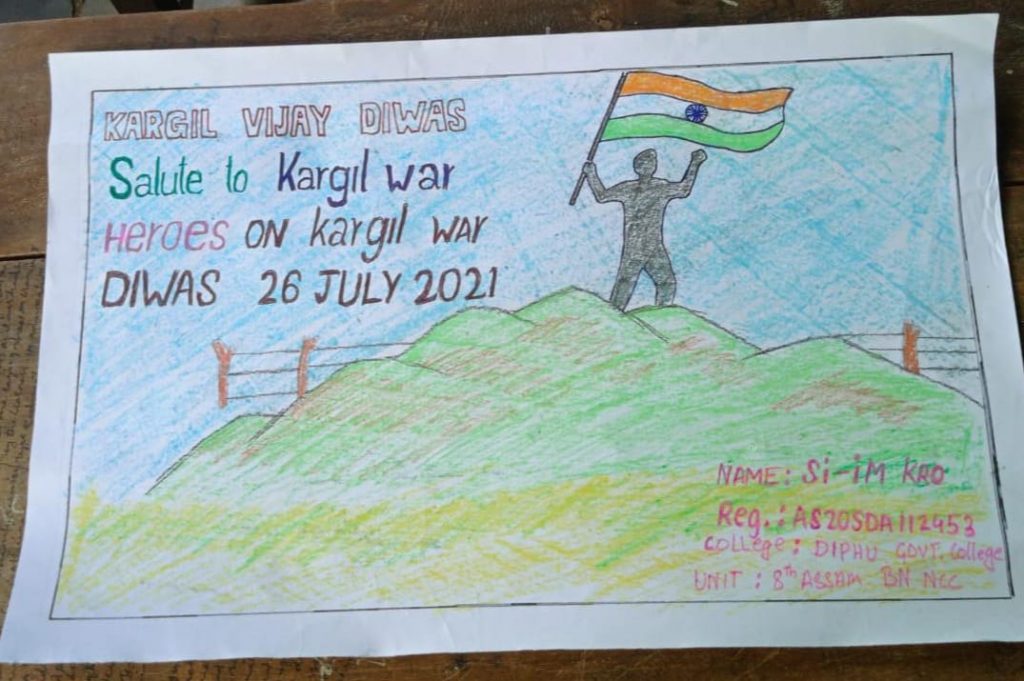 KARGIL VIJAY DIWAS
Salute to Kargil war
Heroes ON kargil WAR
DIWAS 26 JULY 2021
NAME: Si-iM KRO
Reg.: AS20SDA112453
College: DIPHU GOVT. College
UNIT : 8th ASSAM BN NCC